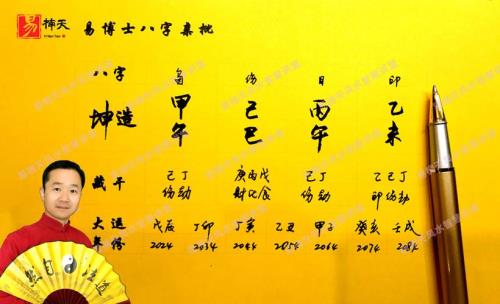 易
易博士八字集批
八字 伤 日 印
坤造 甲 己 丙 乙
午 巳 午 未
藏干 己丁 庚丙戊 己丁 乙己丁
伤劫 财比食 伤劫 印伤劫
大运 戊辰 丁卯 乙丑 甲子 癸亥 壬戌
年份 2024 2034 2044 2054 2064 2074 2084
然自法道